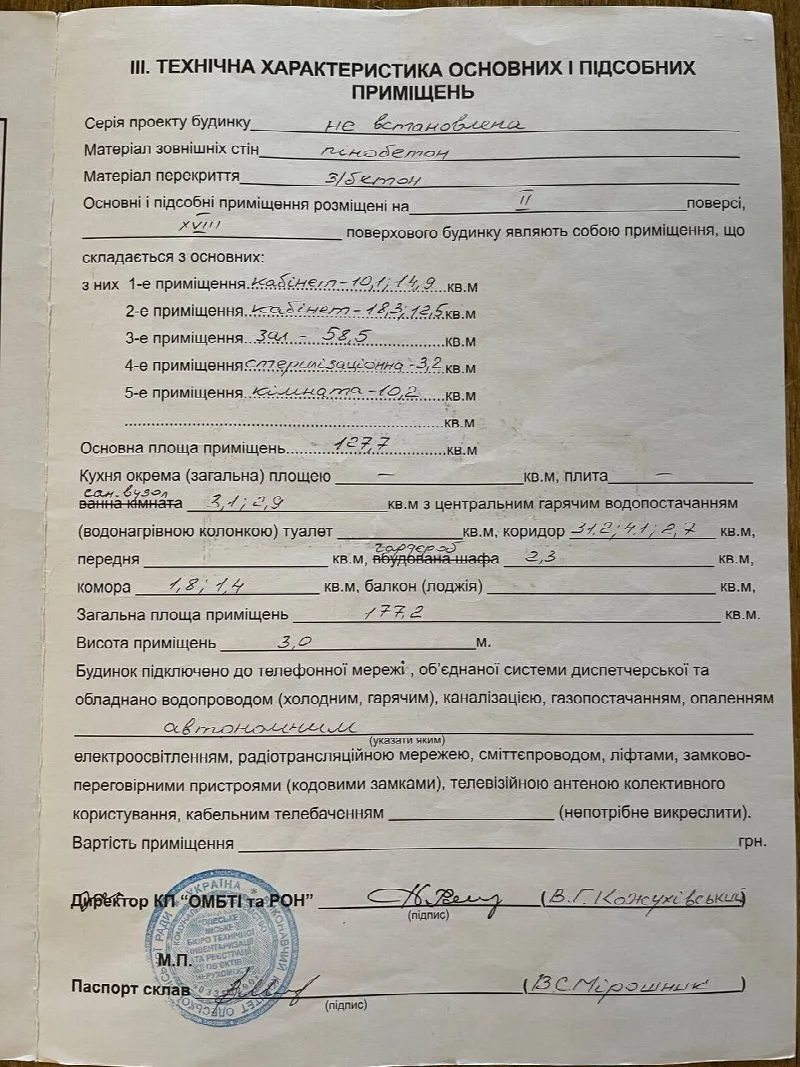 III. ТЕХНІЧНА ХАРАКТЕРИСТИКА ОСНОВНИХ І ПІДСОБНИХ
ПРИМІЩЕНЬ
Серія проекту будинку не встановлена
Матеріал зовнішніх стін пінобетон
Матеріал перекриття з/бетон
Основні і підсобні приміщення розміщені на II поверсі,
XVIII поверхового будинку являють собою приміщення, що
складається з основних:
з них 1-е приміщення кабінет-10,1; 14,9 кв.м
2-е приміщення кабінет-18,3; 12,5 кв.м
3-е приміщення зал - 58,5 кв.м
4-е приміщення стерилізаціонна-3,2 кв.м
5-е приміщення кімната-10,2 кв.м
кв.м
Основна площа приміщень 127,7 кв.м
Кухня окрема (загальна) площею — кв.м, плита —
сан.вузол
ванна кімната 3,1; 2,9 кв.м з центральним гарячим водопостачанням
(водонагрівною колонкою) туалет кв.м, коридор 31,2; 4,1; 2,7 кв.м,
гардероб
передня кв.м, вбудована шафа 2,3 кв.м,
комора 1,8; 1,4 кв.м, балкон (лоджія) кв.м,
Загальна площа приміщень 177,2 кв.м.
Висота приміщень 3,0 м.
Будинок підключено до телефонної мережі, об’єднаної системи диспетчерської та
обладнано водопроводом (холодним, гарячим), каналізацією, газопостачанням, опаленням
автономним
(указати яким)
електроосвітленням, радіотрансляційною мережею, сміттєпроводом, ліфтами, замково-
переговірними пристроями (кодовими замками), телевізійною антеною колективного
користування, кабельним телебаченням (непотрібне викреслити).
Вартість приміщення грн.
Директор КП “ОМБТІ та РОН” (В.Г. Кожухівський)
(підпис)
УКРАЇНА
ОДЕСЬКЕ
МІСЬКЕ
БЮРО ТЕХНІЧНОЇ
ІНВЕНТАРИЗАЦІЇ
ТА РЕЄСТРАЦІЇ
ОБ'ЄКТІВ
НЕРУХОМОСТІ
М.П.
Паспорт склав (В.С. Мірошник)
(підпис)